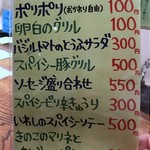 ポリポリ(おかわり自由) 100円
卵白のグリル 100円
バジルトマトのとうふサラダ 300円
スパイシー豚グリル 500円
ソーセージ盛り合わせ 550円
スパイシーピリ辛きゅうり 300円
いわしのスパイシーソテー 500円
きのこのマリネと